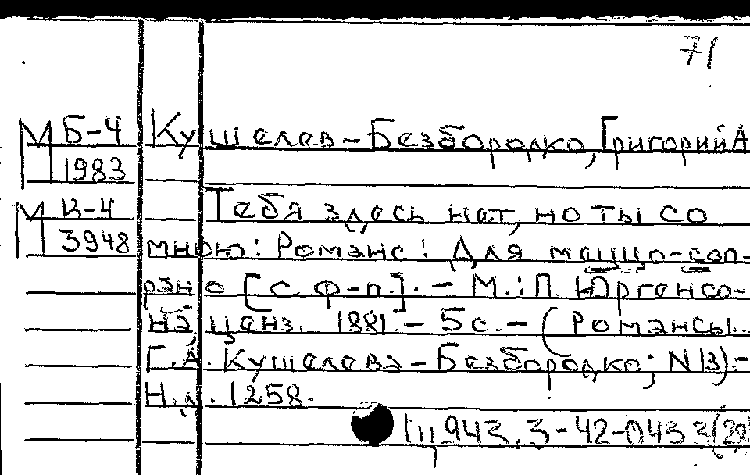 71
М Б-4 Кушелев-Безбородко, Григорий А
1983
М В-4 Тебя здесь нет, но ты со
3948 мною: Романс: Для меццо-соп-
рано [с ф-п.]. - М.: П. Юргенсо-
на ценз. 1881. - 5 с. - (Романсы
Г.А. Кушелева-Безбородко; N 13).-
Н.д. 1258.
943.3-42-0433